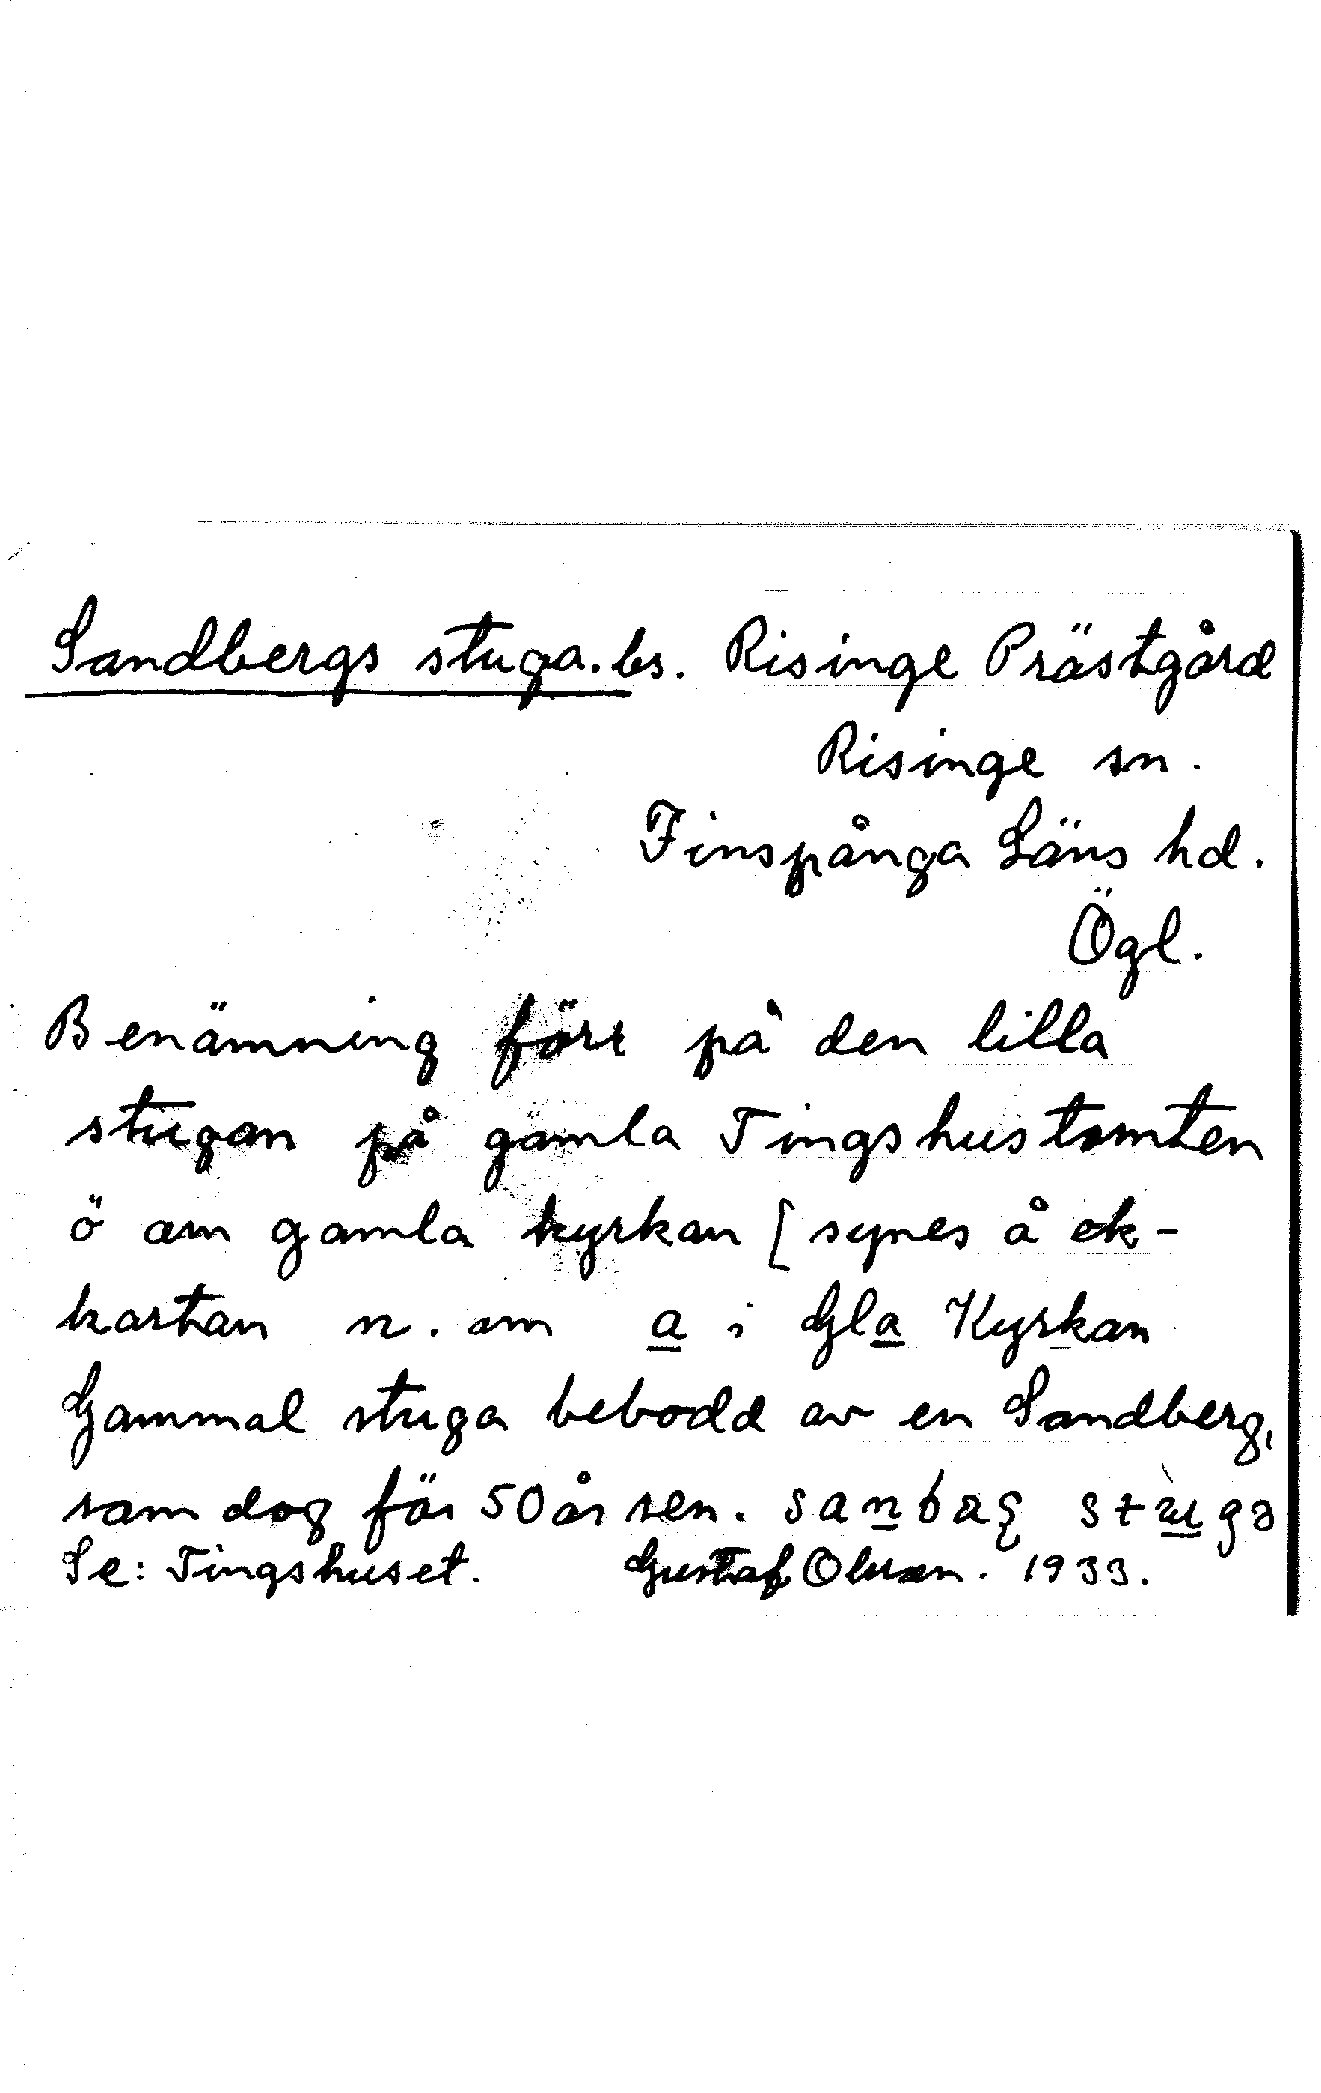 Sandbergs stuga. bs. Risinge Prästgård
Risinge sn.
Finspånga Läns hd.
Ögl.
Benämning förr på den lilla
stugan på gamla Tingshustomten
ö om gamla kyrkan [synes å ek-
kartan n. om a i Gla Kyrkan
Gammal stuga bebodd av en Sandberg,
som dog för 50 år sen.
Se: Tingshuset. Gustaf Olsson. 1933.